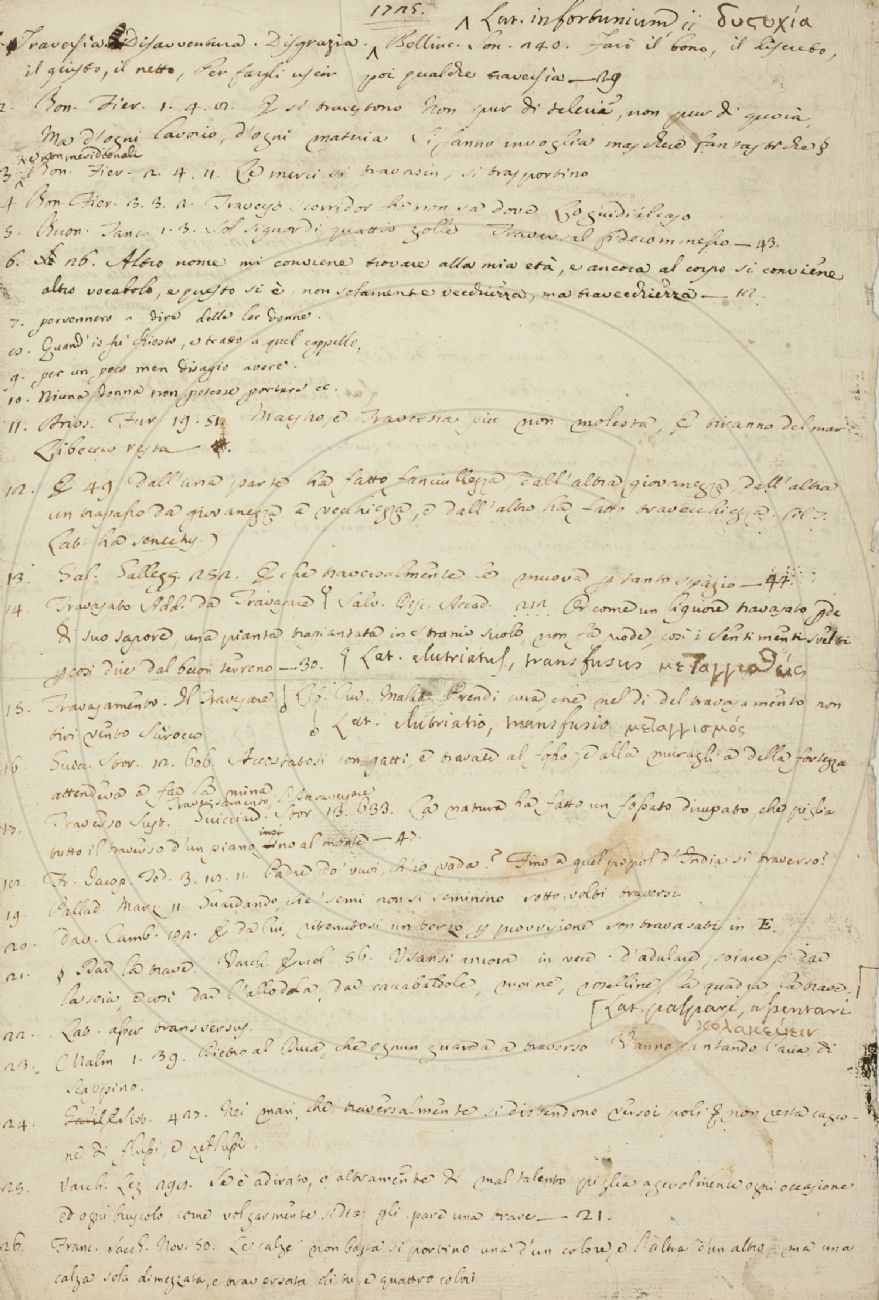 1725.
^ Lat. infortunium ii δυσυχία
Traversia. Disavventura. Disgrazia. ^ Bellinc. Son. 240. Farò il bono, il discreto,
il giusto, il netto, Per fargli uscir poi qualche traversia — 29
2. Bon. Fier. 1. 4. Et si travestono Non pur di teleria, non pur di quoia,
Ma d'ogni lavorio, d'ogni materia Si fanno invoglia maschere fantastiche
e non meridionali
3. Bon. Fier. 2. 4. 11. Le merci si travasin, si trasportino
4. Bon. Fier. 3. 3. 2. Traverso corridor che non sa dove Lo guidi il caso
5. Buon. Tanc. 1. 3. Sol signor di quattro zolle Traversal fidecommesso — 43.
6. 26. Altro nome mi conviene trovare alla mia età, e ancora al corpo si conviene
altro vocabolo, e questo si è non solamente vecchiezza, ma travecchiezza —
7. pervennero a dire delle lor donne.
8. Quand' io fu' chiesto, e tratto a quel cappello,
9. per un poco men disagio avere.
10. Niuna donna non potesse portare ec.
11. Arios. Fur. 19. 51. Maestro, e Traversia più non molesta, E tiranno del mar
Libeccio resta —
12. E 49. Dall'una parte ha fatto fanciullezza, dall'altra giovanezza, dall'altra
un trapasso da giovanezza a vecchiezza, e dall'altro ha fatto travecchiezza.
Lat. ha senectus.)
13. Gal. Gallegg. 252. E che traversalmente le muova p tanto spazio — 44
14. Travasato Add. da Travasare Salv. Disc. Accad. Or come un liquore travasato pde
di suo sapore, una pianta trapiantata in stranio suolo, non fa prode, così i sentimenti svelti
p così dire dal buon terreno — 30. Lat. elutriatus, transfusus μεταγγισθείς
15. Travasamento. Il Travasare Lib. Cur. Malatt. Prendi cura, che nel dì del travasamento non
tiri vento Scirocco Lat. elutriatio, transfusio μεταγγισμός
16. Guicc. Stor. 12. 606. Accostatosi con gatti, e travate al fosso, e alla muraglia della fortezza
attendeva a far la mina
Traversamento, Attraversare
17. Traverso Sust. Guicciard. Stor. 13. 633. La natura ha fatto un fossato dirupato, che piglia
tutto il traverso d'un piano, insino al monte — 47
18. Fr. Iacop. Tod. 3. 12. 11. Padre do' vuoi, ch'io vada? Fino a quel popol d'India sì traverso?
19. Pallad. Marz. 11. Guardando, che' semi non si seminino sotto solchi traversi
20. Dav. Camb. 102. E da lui, ributtosi un terzo p provvisione son travasati in E.
21. Dar la trave. Varch. Ercol. 56. Usansi ancora in vece d'adulare, soiare o dar
la soia, e così dar l'allodola, dar caccabaldole, moine, roselline, la quadra, la trave.
[Lat. palpari, assentari
κολακεύειν
22. Lat. asser transversus.
23. Malm. 1. 39. Dietro al Duca, che ognun guarda a traverso Vanno cantando l'aria di
Scappino.
24. Lob. 427. Nei mari, che traversalmente si distendono verso i poli non resta cagio-
ne di flussi, e reflussi.
25. Varch. Lez. 295. Se è adirato, o altramente di mal talento piglia agevolmente ogni occasione
ed ogni bruscolo, come volgarmente si dice gli pare una trave — 21.
26. Franc. Sacch. Nov. 50. Le calze non basta si portino una d'un colore, e l'altra d'un altro, ma una
calza sola dimezzata, e traversata di tre, e quattro colori